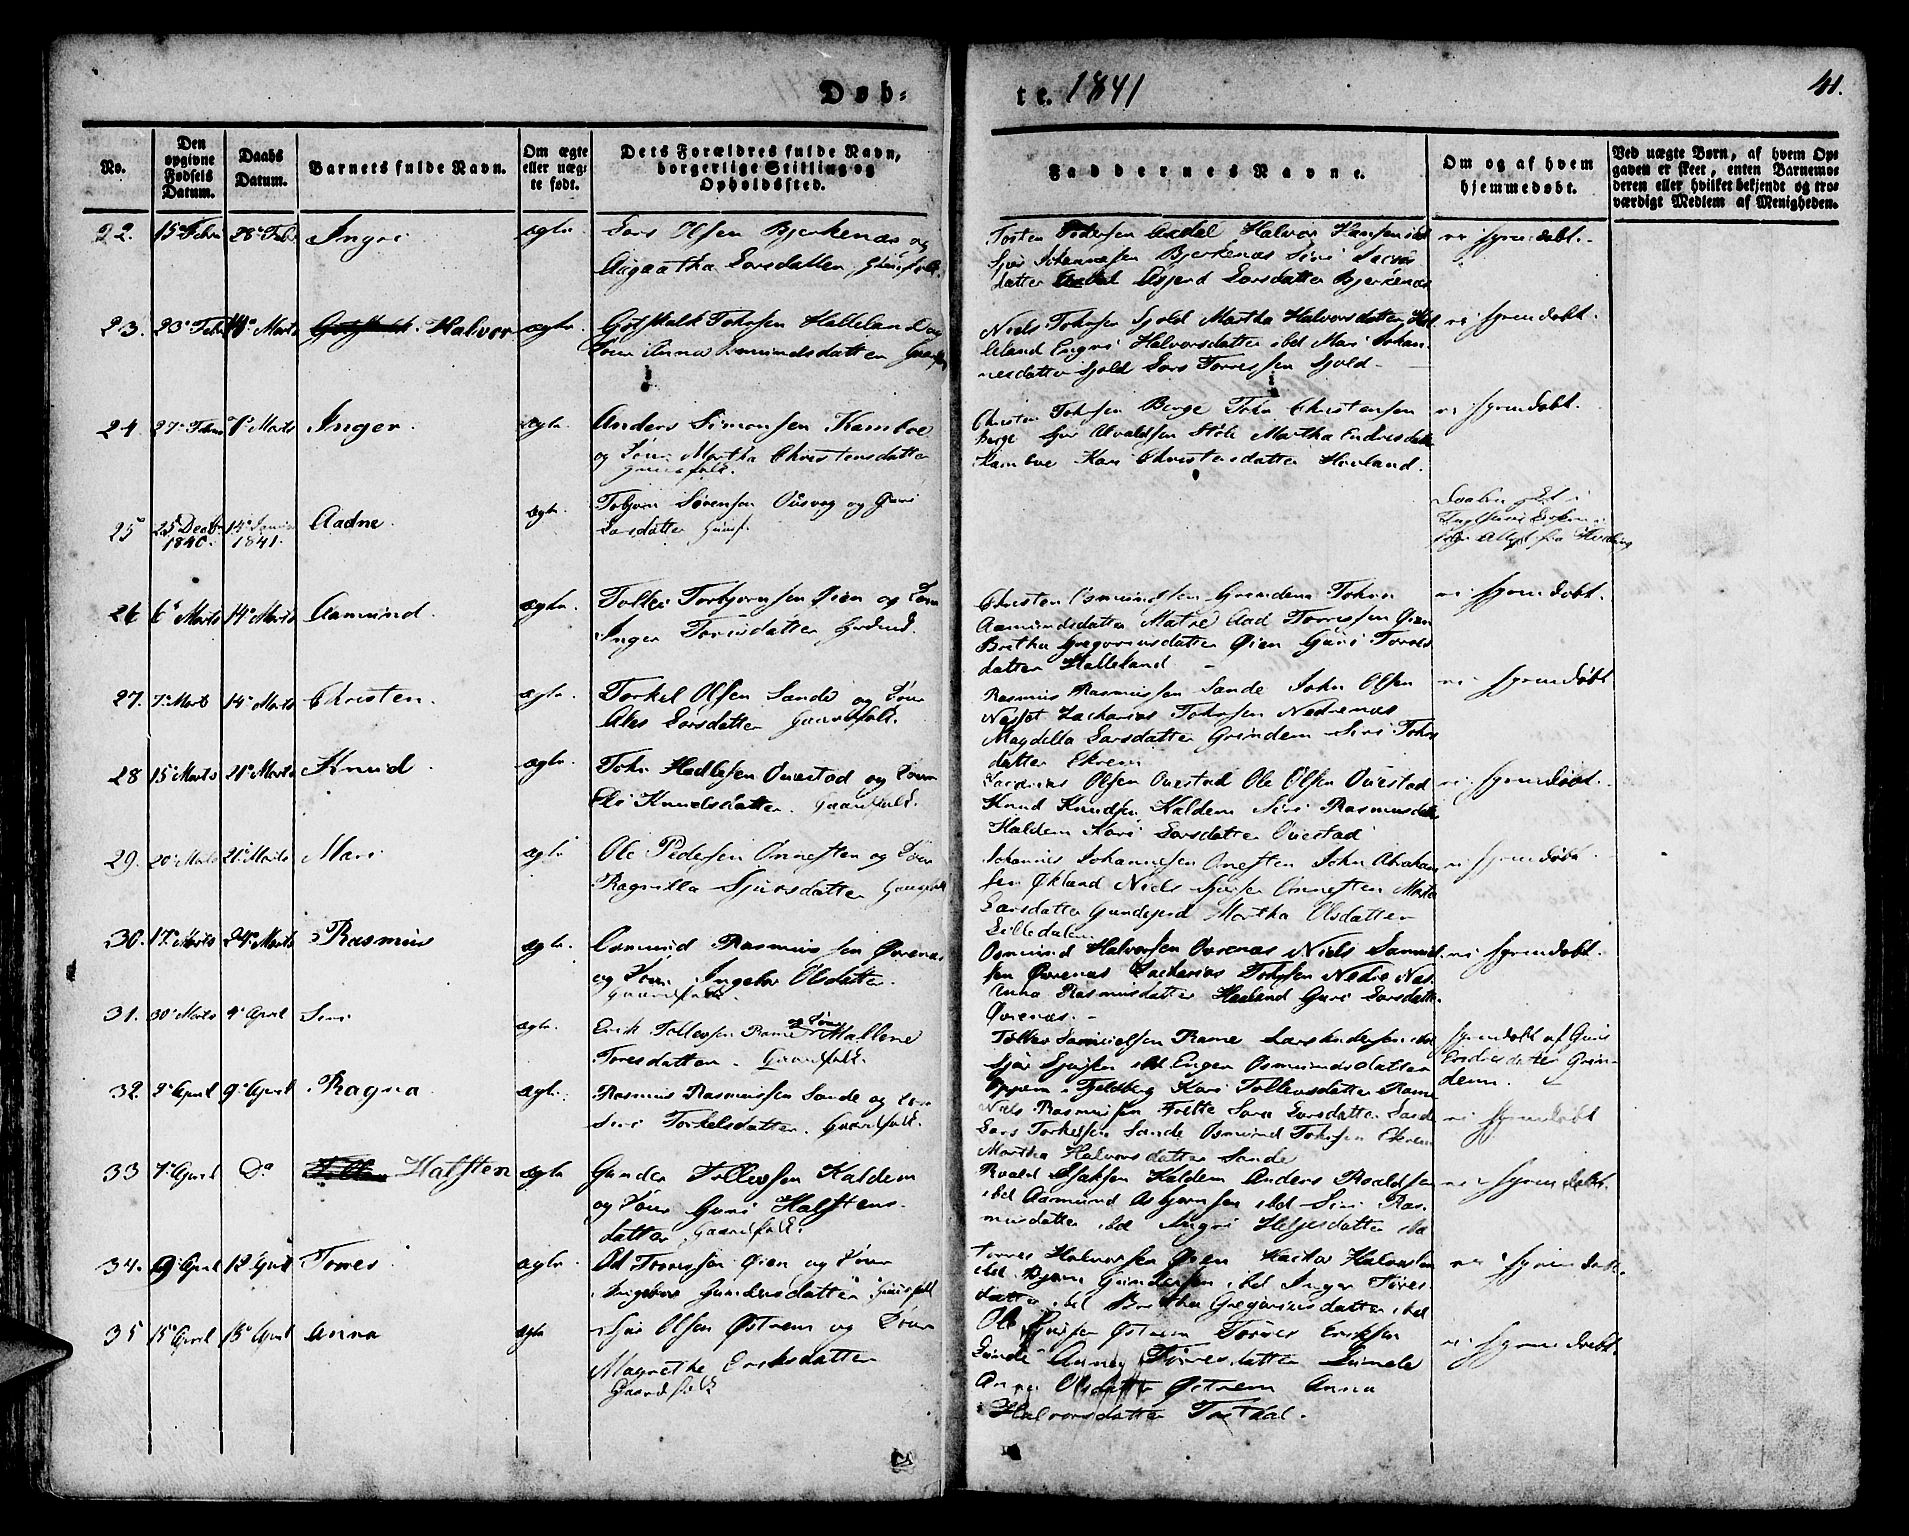 Døb- te. 1841 41.
No.
Den opgivne Fødsels Datum.
Daabs Datum.
Barnets fulde Navn.
Om ægte eller uægte født.
Dets Forældres fulde Navn, borgerlige Stilling og Opholdssted.
Faddernes Navne.
Om og af hvem hjemmedøbt.
Ved uægte Børn, af hvem Opgaven er skeet, enten Barnemoderen eller hvilket bekjendt og troværdigt Medlem af Menigheden.
22. 15 Febr 28 Febr Ingri ægte. Lars Olsen Bjerkenæs og
Aagaatha Larsdatter
Tosten Pedersen Axdal Halvor Hansen ibd
Sjur Johannesen Bjerkenæs Siri
datter Asjerd Larsdatter Bjerkenæs
ei hjemdøbt.
23. 23 Febr Marts Halvor ægte Gotskalk Johnsen Halleland og
Kone Anna Omundsdatter
Niels Johnsen Sjold Martha Halvorsdatter Hal
leland Engri Halvorsdatter ibd Mari Johan-
nesdatter Sjold Lars Torressen Sjold
ei hjemdøbt.
24. 27 Febr 7 Marts Inger ægte. Anders Simonsen Kamboe
og Kone Martha Christensdatter
Christen Johnsen Berge John Christensen
Berge Sjur Martha Endresdatter
Kamboe Kari Christensdatter Hovland.
ei hjemdøbt.
25 25 Decbr 1840. 14 1841. Aadne ægte. Torbjørn Sørensen og Guri
Larsdatter
26 6 Marts 14 Marts Aamund. ægte. Tollev Torbjørnsen Øien og Kone
Inger Torrisdatter
Christen Osmundsen Grindem Johna
Aamundsdatter Matre Aad Torressen Øien
Bretha Gregoriusdatter Øien Guri Torres
datter Halleland
ei hjemdøbt.
27. 7 Marts 14 Marts Christen. ægte. Torkel Olsen Sande og Kone
Larsdatter Gaardfolk.
Rasmus Rasmussen Sande John Olsen
Næsset Zacharias Johnsen Nedrenæs
Magdella Larsdatter Grindem Siri John
datter Ekrem
ei hjemdøbt
28 15 Marts 21 Marts Knud ægte. John Hadlesen Ouestad og Kone
Eli Knudsdatter. Gaardfolk.
Zacarias Olsen Ouestad Ole Olsen Ouestad
Knud Knudsen Haldem Siri Rasmusdatter
Haldem Kari Larsdatter Ouestad
ei hjemdøbt.
29. 20 Marts 21 Marts Mari ægte Ole Pedersen Ønnesten og Kone
Ragnilla Sjursdatter
Johannes Johannesen Ønnesten John Abraham
sen Økland Niels Sjursen Ønnesten Marta
Larsdatter Gundegjerd Martha Olsdatter
Lilledalen
ei hjemdøbt
30. 17 Marts 24 Marts Rasmus ægte. Osmund Rasmussen Øvrenæs
og Kone Ingebor Olsdatter.
Gaardfolk.
Osmund Halvorsen Øvrenæs Niels Samuel
sen Øvrenæs Zacharias Johnsen Nedre Næs
Anna Rasmusdatter Hovland Guri Larsdatter
Øvrenæs.
ei hjemdøbt.
31. 30 Marts 4 April Siri ægte. Erik Tollevsen Rame og Kone Mallene
Toresdatter. Gaardfolk.
Tollev Samuelsen Rame Lars Andersen ibd
Sjur Sjursen ibd Enger Osmundsdatter
i Fjeldberg Kari Tollevsdatter Rame
hjemdøbt af Guri
Endresdatter Grin-
dem.
32. 2 April 9 April Ragna ægte. Rasmus Rasmussen Sande og Kone
Siri Torkelsdatter. Gaardfolk.
Niels Rasmussen Frette Sara Larsdatter Sande
Lars Torkelsen Sande Osmund Johnsen Ekrem
Martha Halvorsdatter Sande
ei hjemdøbt
33 7 April Do Halsten ægte Gunder Tollevsen Haldem
og Kone Guri Halstens-
datter Gaardfolk.
Roald Isaksen Haldem Anders Roaldsen
ibd Aamund Asbjørnsen ibd Siri Ras-
musdatter ibd Ingri Helgesdatter
ei hjemdøbt.
34. 9 April 12 April Torres ægte. Ad Torressen Øien og Kone
Ingebor Gundersdatter
Torres Halvorsen Øien Halvorsen
ibd Bjørn Gundersen ibd Inger Torres
datter ibd Bretha Gregoriusdatter ibd
ei hjemdøbt.
35 15 April 18 April Anna ægte Sjur Olsen Østrem og Kone
Magrethe Eriksdatter
Gaardfolk
Ole Sjursen Østrem Torres Eriksen
Lunde Anna Torresdatter Lunde
Anna Olsdatter Østrem Anna
Halvorsdatter
ei hjemdøbt.